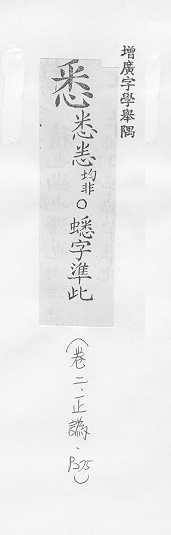 增廣字學舉隅
悉 均非○蟋字準此
(卷二.正譌.